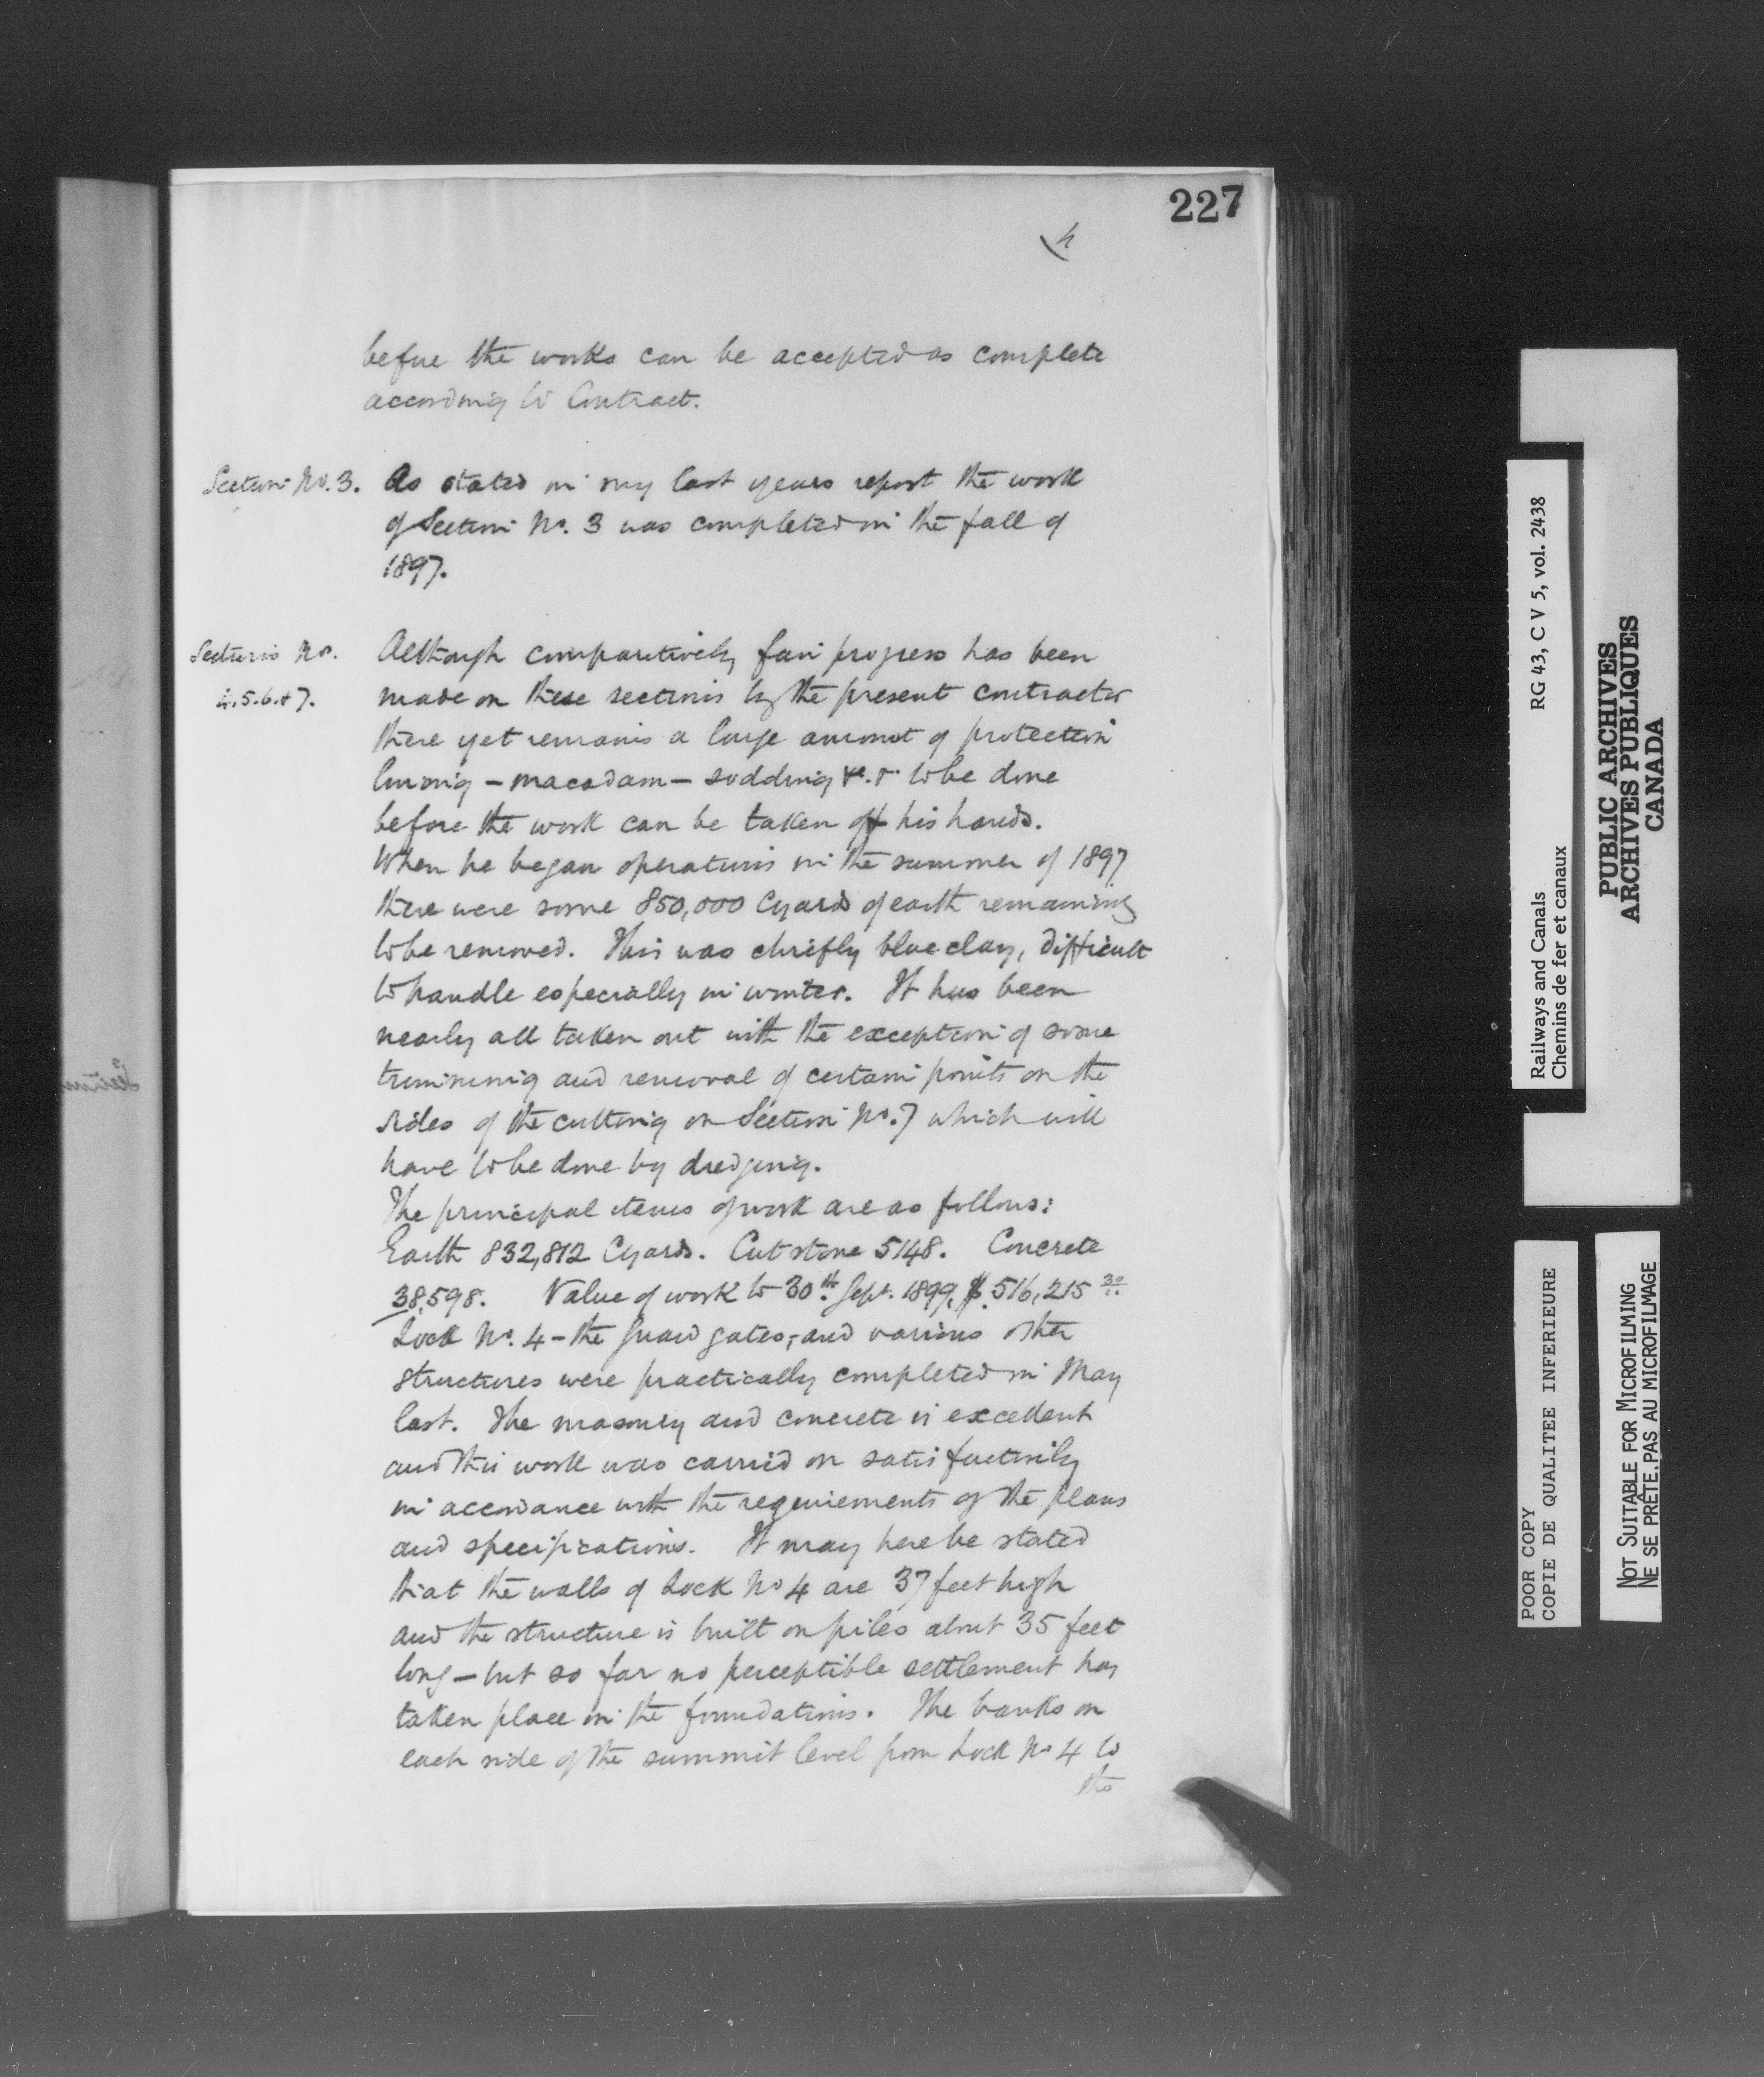 227
4
before the works can be accepted as complete
according to Contract.
Section No. 3. As stated in my last years report the work
of Section No. 3 was completed in the fall of
1897.
Sections Nos. Although comparatively fair progress has been
4.5.6.&7. made on these sections by the present contractor
there yet remains a large amount of protection
lining - macadam - sodding &c. &c. to be done
before the work can be taken off his hands.
When he began operations in the summer of 1897
there were some 850,000 Cyards of earth remaining
to be removed. This was chiefly blue clay, difficult
to handle especially in winter. It has been
nearly all taken out with the exception of some
trimming and removal of certain points on the
sides of the cutting on Section No. 7 which will
have to be done by dredging.
The principal items of work are as follows:
Earth 832,812 Cyards. Cut stone 5148. Concrete
38,598. Value of work to 30th Sept. 1899, $516,215 30
Lock No. 4 - the guard gates, and various other
structures were practically completed in May
last. The masonry and concrete is excellent
and this work was carried on satisfactorily
in accordance with the requirements of the plans
and specifications. It may here be stated
that the walls of Lock No 4 are 37 feet high
and the structure is built on piles about 35 feet
long - but so far no perceptible settlement has
taken place in the foundations. The banks on
each side of the summit level from Lock No 4 to
the
Railways and Canals RG 43, C V 5, vol. 2438
Chemins de fer et canaux
PUBLIC ARCHIVES
ARCHIVES PUBLIQUES
CANADA
POOR COPY
COPIE DE QUALITEE INFERIEURE
NOT SUITABLE FOR MICROFILMING
NE SE PRÊTE PAS AU MICROFILMAGE